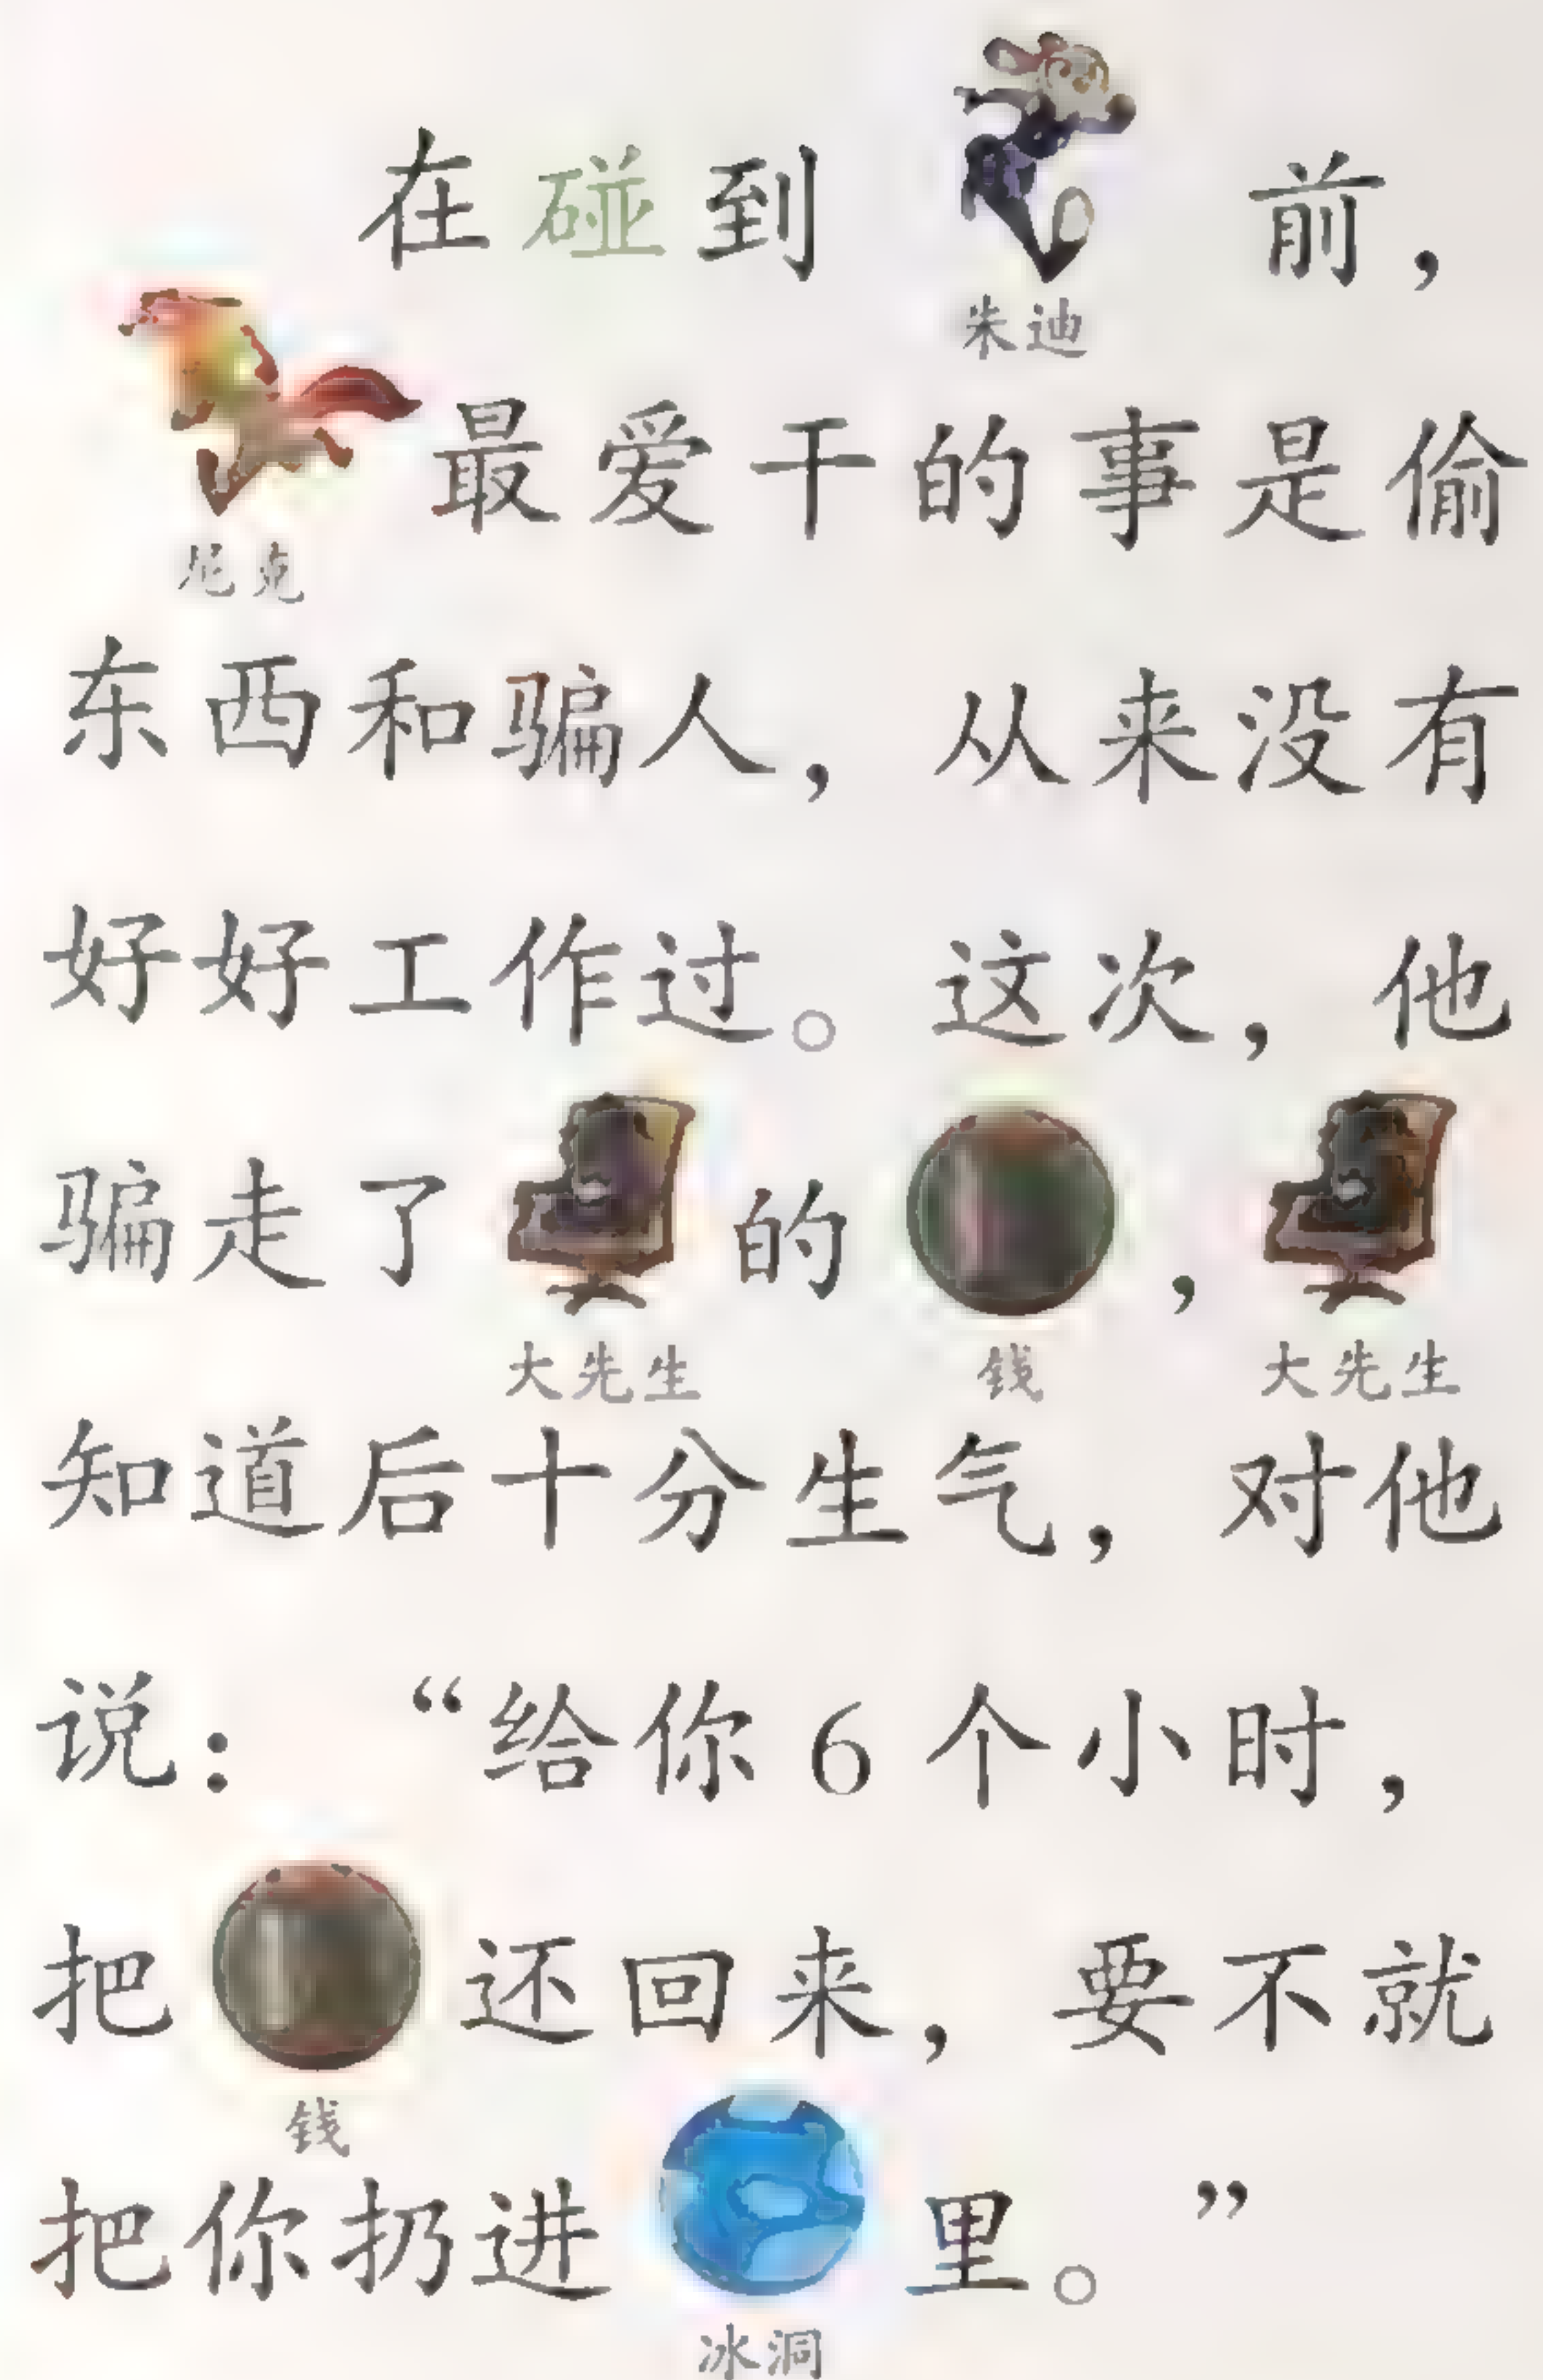 在碰到 前，
朱迪
最爱干的事是偷
尼克
东西和骗人，从来没有
好好工作过。这次，他
骗走了 的 ，
大先生 钱 大先生
知道后十分生气，对他
说：“给你6个小时，
把 还回来，要不就
钱
把你扔进 里。”
冰洞